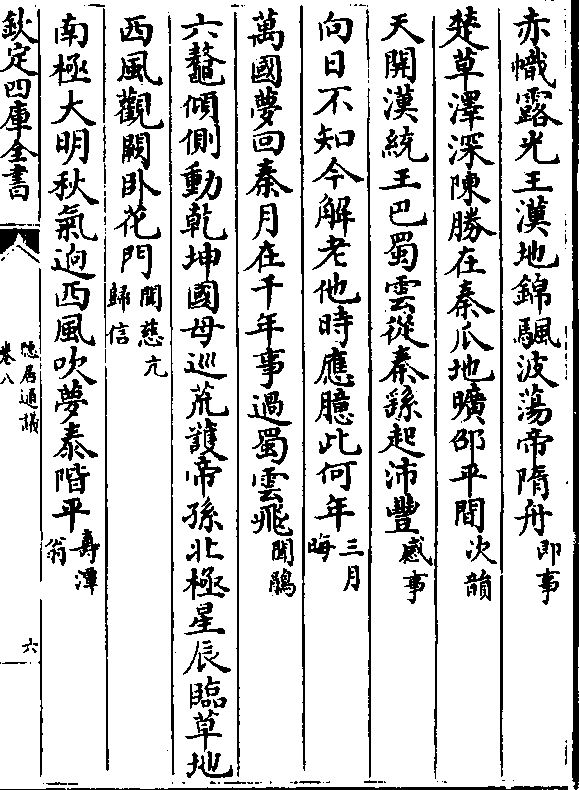 赤幟露光王漢地錦颿波蕩帝隋舟即事
楚草澤深陳勝在秦瓜地曠邵平間次韻
天開漢統王巴蜀雲從秦繇起沛豐感事
向日不知今解老他時應臆此何年三月晦
萬國夢回秦月在千年事過蜀雲飛聞鵑
六鼇傾側動乾坤國母巡荒護帝孫北極星辰臨草地
西風觀闕卧花門聞慈亢歸信
南極大明秋氣逈西風吹夢泰階平壽潭翁
欽定四庫全書
隱居通議
卷八
六